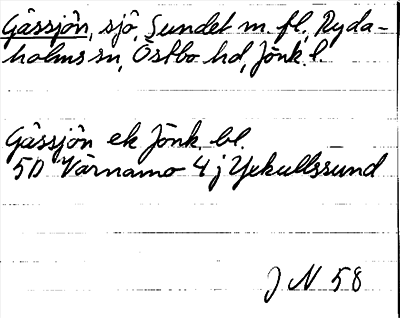 Gåssjön, sjö, Sundet m. fl., Ryda-
holms sn, Östbo hd, Jönk. l.
Gåssjön ek Jönk. bl.
5D Värnamo 4 j Yekullssund
J N 58